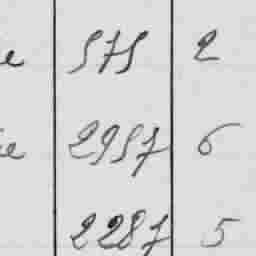 e 575 2
ie 2957 6
2287 5